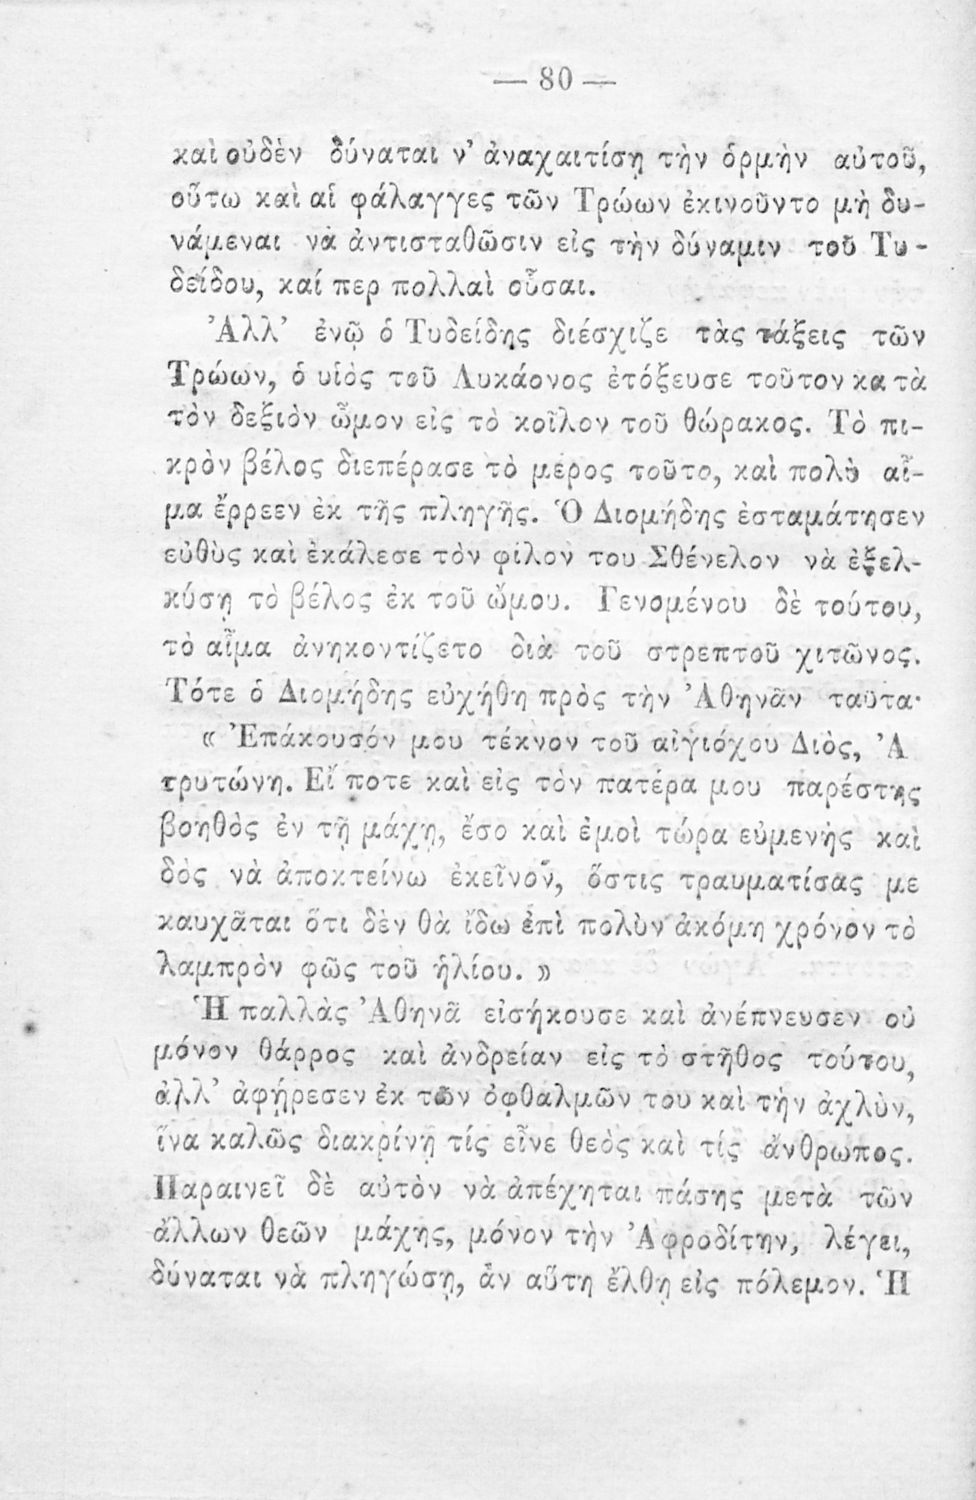 — 80 —
καὶ οὐδὲν δύναται ν’ ἀναχαιτίσῃ τὴν ὁρμὴν αὐτοῦ,
οὕτω καὶ αἱ φάλαγγες τῶν Τρώων ἐκινοῦντο μὴ δυ-
νάμεναι νὰ ἀντισταθῶσιν εἰς τὴν δύναμιν τοῦ Τυ-
δείδου, καί περ πολλαὶ οὖσαι.
Ἀλλ’ ἐνῷ ὁ Τυδείδης διέσχιζε τὰς τάξεις τῶν
Τρώων, ὁ υἱὸς τοῦ Λυκάονος ἐτόξευσε τοῦτον κατὰ
τὸν δεξιὸν ὦμον εἰς τὸ κοῖλον τοῦ θώρακος. Τὸ πι-
κρὸν βέλος διεπέρασε τὸ μέρος τοῦτο, καὶ πολὺ αἷ-
μα ἔρρεεν ἐκ τῆς πληγῆς. Ὁ Διομήδης ἐσταμάτησεν
εὐθὺς καὶ ἐκάλεσε τὸν φίλον του Σθένελον νὰ ἐξελ-
κύσῃ τὸ βέλος ἐκ τοῦ ὤμου. Γενομένου δὲ τούτου,
τὸ αἷμα ἀνηκοντίζετο διὰ τοῦ στρεπτοῦ χιτῶνος.
Τότε ὁ Διομήδης εὐχήθη πρὸς τὴν Ἀθηνᾶν ταῦτα·
« Ἐπάκουσόν μου τέκνον τοῦ αἰγιόχου Διὸς, Ἀ
τρυτώνη. Εἴ ποτε καὶ εἰς τὸν πατέρα μου παρέστης
βοηθὸς ἐν τῇ μάχῃ, ἔσο καὶ ἐμοὶ τώρα εὐμενὴς καὶ
δὸς νὰ ἀποκτείνω ἐκεῖνον, ὅστις τραυματίσας με
καυχᾶται ὅτι δὲν θὰ ἴδω ἐπὶ πολὺν ἀκόμη χρόνον τὸ
λαμπρὸν φῶς τοῦ ἡλίου. »
Ἡ παλλὰς Ἀθηνᾶ εἰσήκουσε καὶ ἀνέπνευσεν οὐ
μόνον θάρρος καὶ ἀνδρείαν εἰς τὸ στῆθος τούτου,
ἀλλ’ ἀφῄρεσεν ἐκ τῶν ὀφθαλμῶν του καὶ τὴν ἀχλὺν,
ἵνα καλῶς διακρίνῃ τίς εἶνε θεὸς καὶ τίς ἄνθρωπος.
Παραινεῖ δὲ αὐτὸν νὰ ἀπέχηται πάσης μετὰ τῶν
ἄλλων θεῶν μάχης, μόνον τὴν Ἀφροδίτην, λέγει,
δύναται νὰ πληγώσῃ, ἂν αὕτη ἔλθῃ εἰς πόλεμον. Ἡ